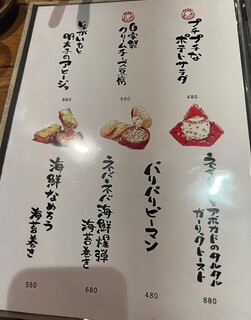 プチプチな
ポテトサラダ
480
自家製
クリームチーズ豆腐
660
じゃがいもと
明太子のアヒージョ
880
とアボカドのタルタル
ガーリックトースト
880
パリパリピーマン
480
ネバネバ海鮮爆弾
海苔巻き
680
海鮮なめろう
海苔巻き
550